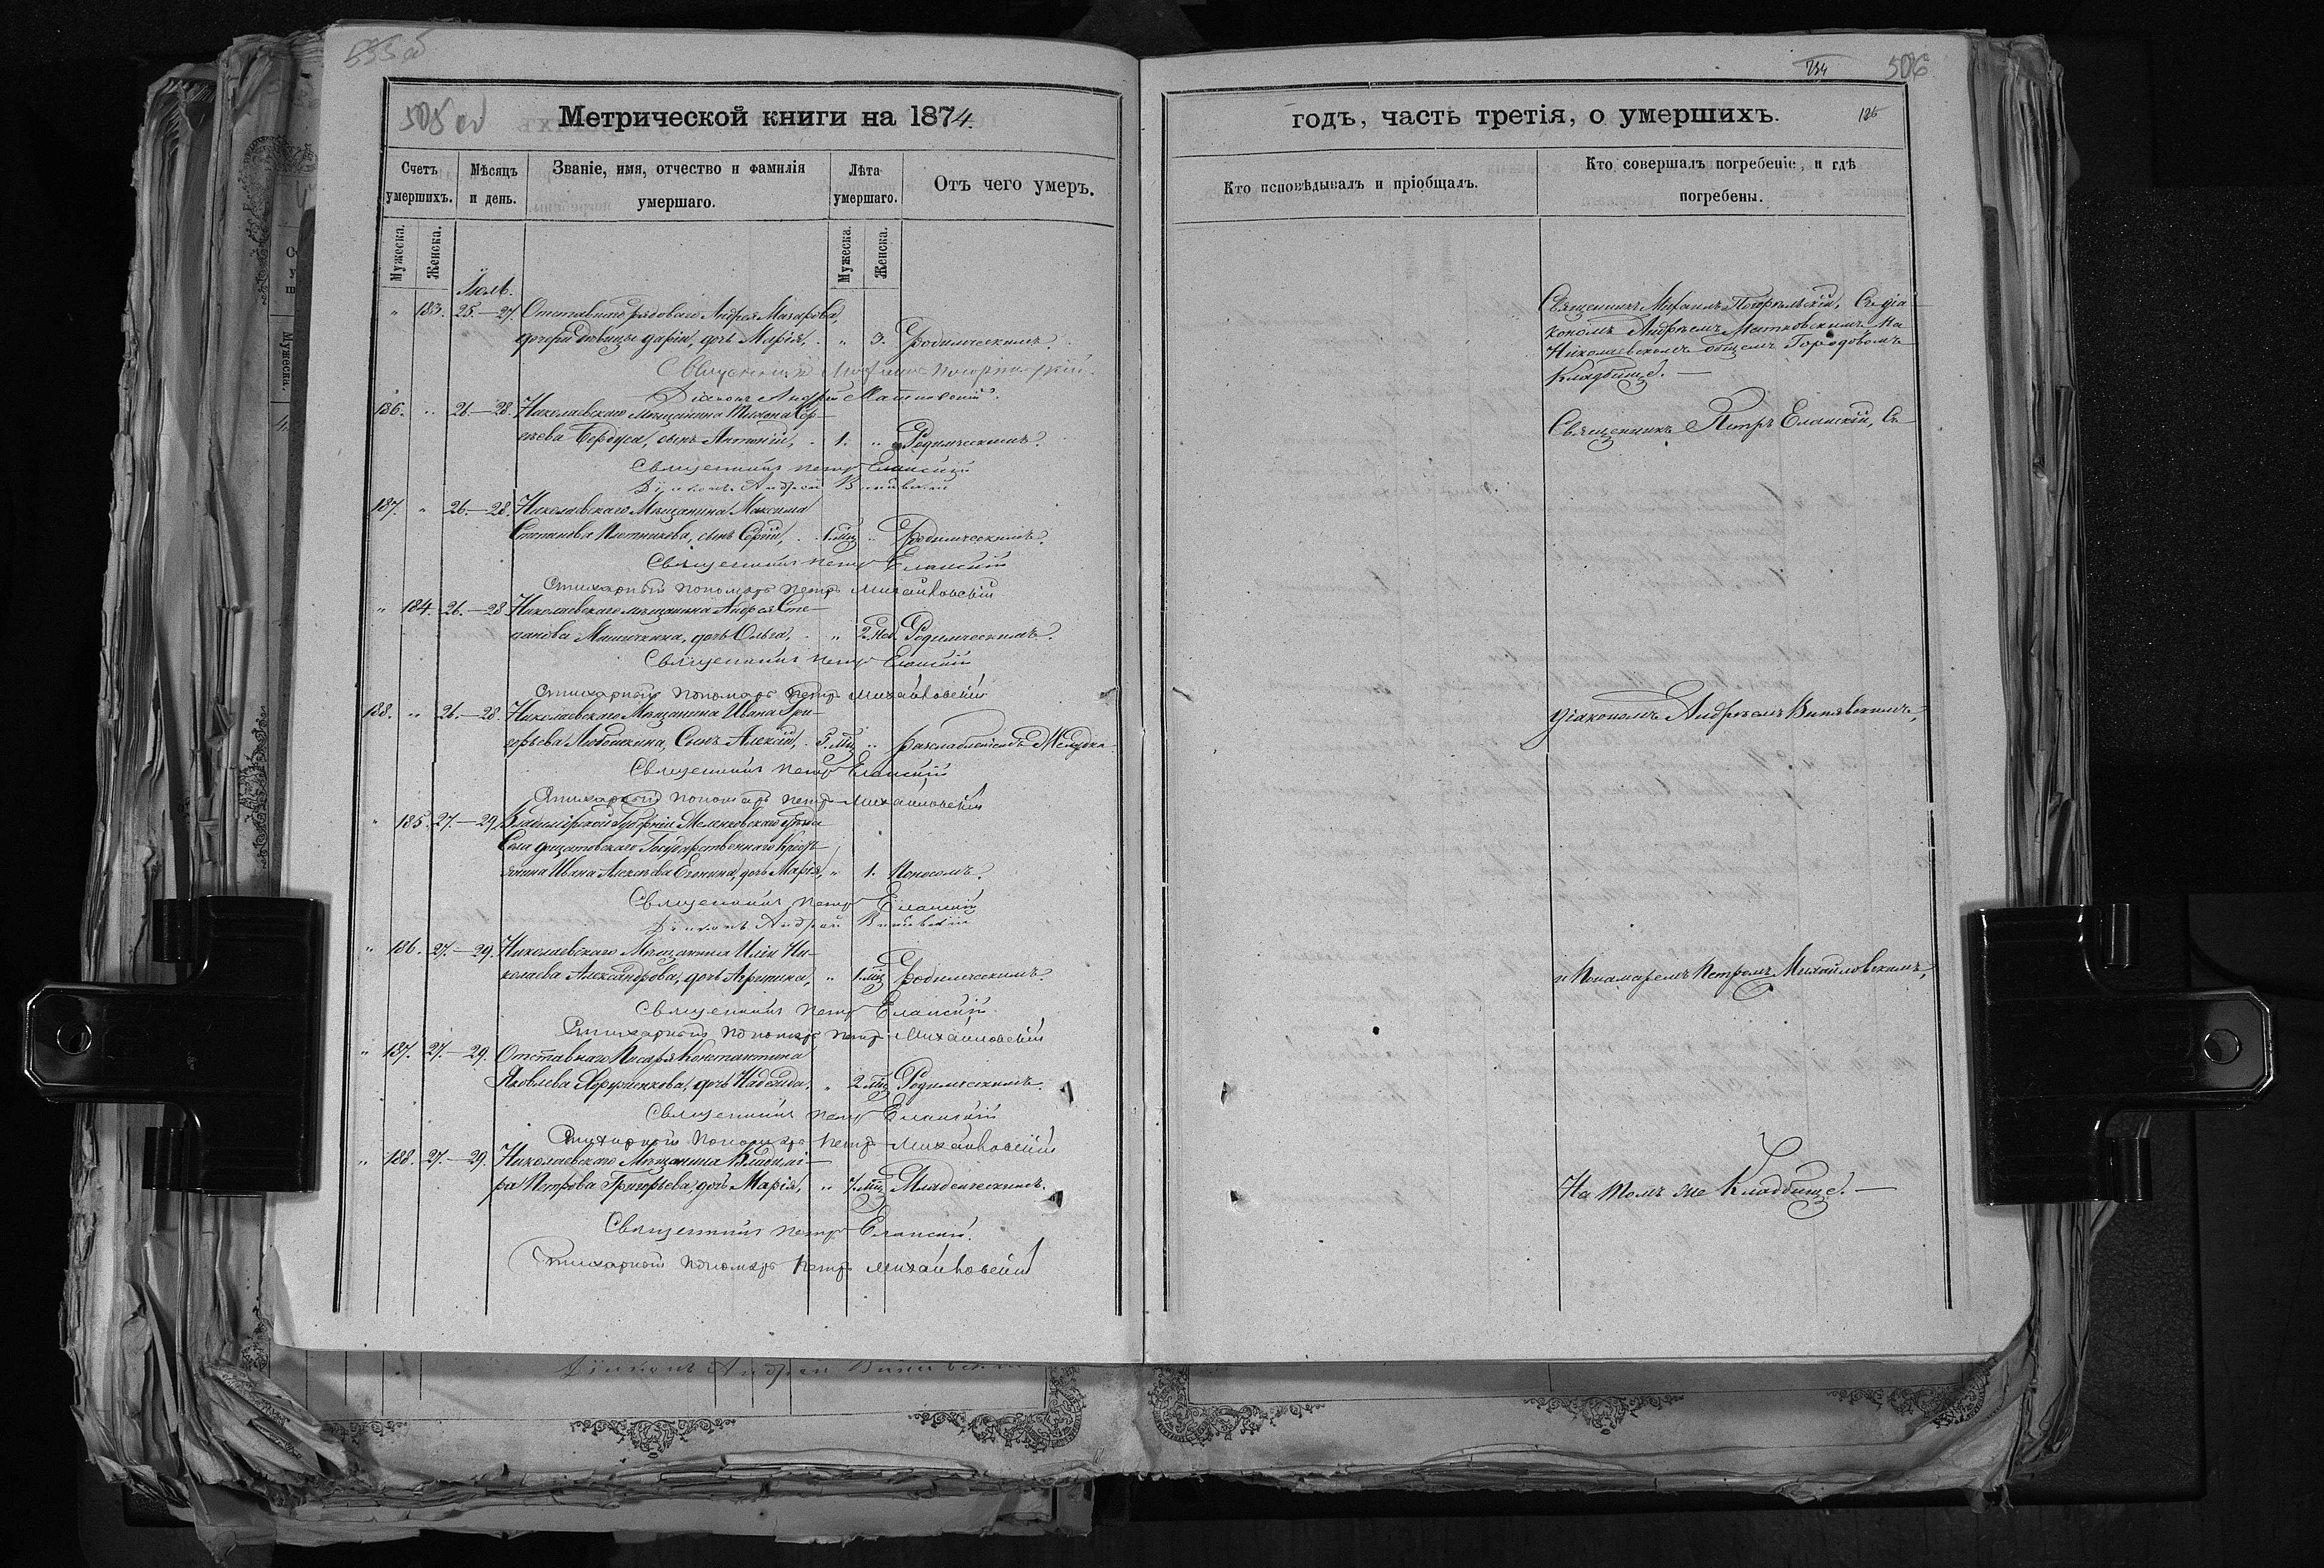 505 об
Метрической книги на 1874.
Счетъ умершихъ.
Мѣсяцъ и день.
Званіе, имя, отчество и фамилія умершаго.
Лѣта умершаго.
Отъ чего умеръ.
Мужеска.
Женска.
Мужеска.
Женска.
Іюль.
" 183. 25.—27. Отставнаго рядоваго Андрея Макарова,
дочери дѣвицы Даріи, дочь Марія, " 3. Родимческимъ.
Священникъ Михаилъ
Діаконъ Андрей Матковскій
186. " 26.—28. Николаевскаго Мѣщанина
сынъ Антоній, 1. " Родимческимъ.
Священникъ Петръ Еланскій
Діаконъ Андрей
187. " 26.—28. Николаевскаго Мѣщанина Максима
Степанова Плотникова, сынъ Сергій, 1 мѣц " Родимческимъ.
Священникъ Петръ Еланскій
Стихарный пономарь Петръ Михайловскій
" 184. 26.—28 Николаевскаго мѣщанина Андрея Сте-
панова дочь Ольга, " 2 нед. Родимческимъ.
Священникъ Петръ Еланскій
Стихарный пономарь Петръ Михайловскій
188. " 26.—28. Николаевскаго Мѣщанина Ивана Гри-
горьева Любошкина, Сынъ Алексій, " Желудка
Священникъ Петръ Еланскій
Стихарный пономарь Петръ Михайловскій
" 185. 27.—29. Владимірской Губерніи Меленковскаго уѣзда
Села Государственнаго Кресть-
янина Ивана Алексѣева дочь Марія, " 1. Поносомъ.
Священникъ Петръ Еланскій
Діаконъ Андрей
" 186. 27.—29. Николаевскаго Мѣщанина Иліи Ни-
колаева Александрова, дочь Агрипина, " 1 мѣц Родимческимъ.
Священникъ Петръ Еланскій
Стихарный пономарь Петръ Михайловскій
" 187. 27.—29. Отставнаго Писаря Константина
Яковлева дочь Надежда, " 2 мѣц Родимческимъ.
Священникъ Петръ Еланскій
Стихарный пономарь Петръ Михайловскій
" 188. 27.—29. Николаевскаго Мѣщанина Владимі-
ра Петрова Григорьева, дочь Марія, " мѣц Младенческимъ.
Священникъ Петръ Еланскій.
Стихарный пономарь Петръ Михайловскій
Діаконъ Андрей
506
годъ, часть третія, о умершихъ.
Кто исповѣдывалъ и пріобщалъ.
Кто совершалъ погребеніе, и гдѣ погребены.
Священникъ Михаилъ Съ діа-
кономъ Андреемъ Матковскимъ На
Николаевскомъ общемъ Городовомъ
Кладбищѣ.—
Священникъ Петръ Еланскій, Съ
Діакономъ Андреемъ
и Пономаремъ Петромъ Михайловскимъ,
На томъ же Кладбищѣ.—